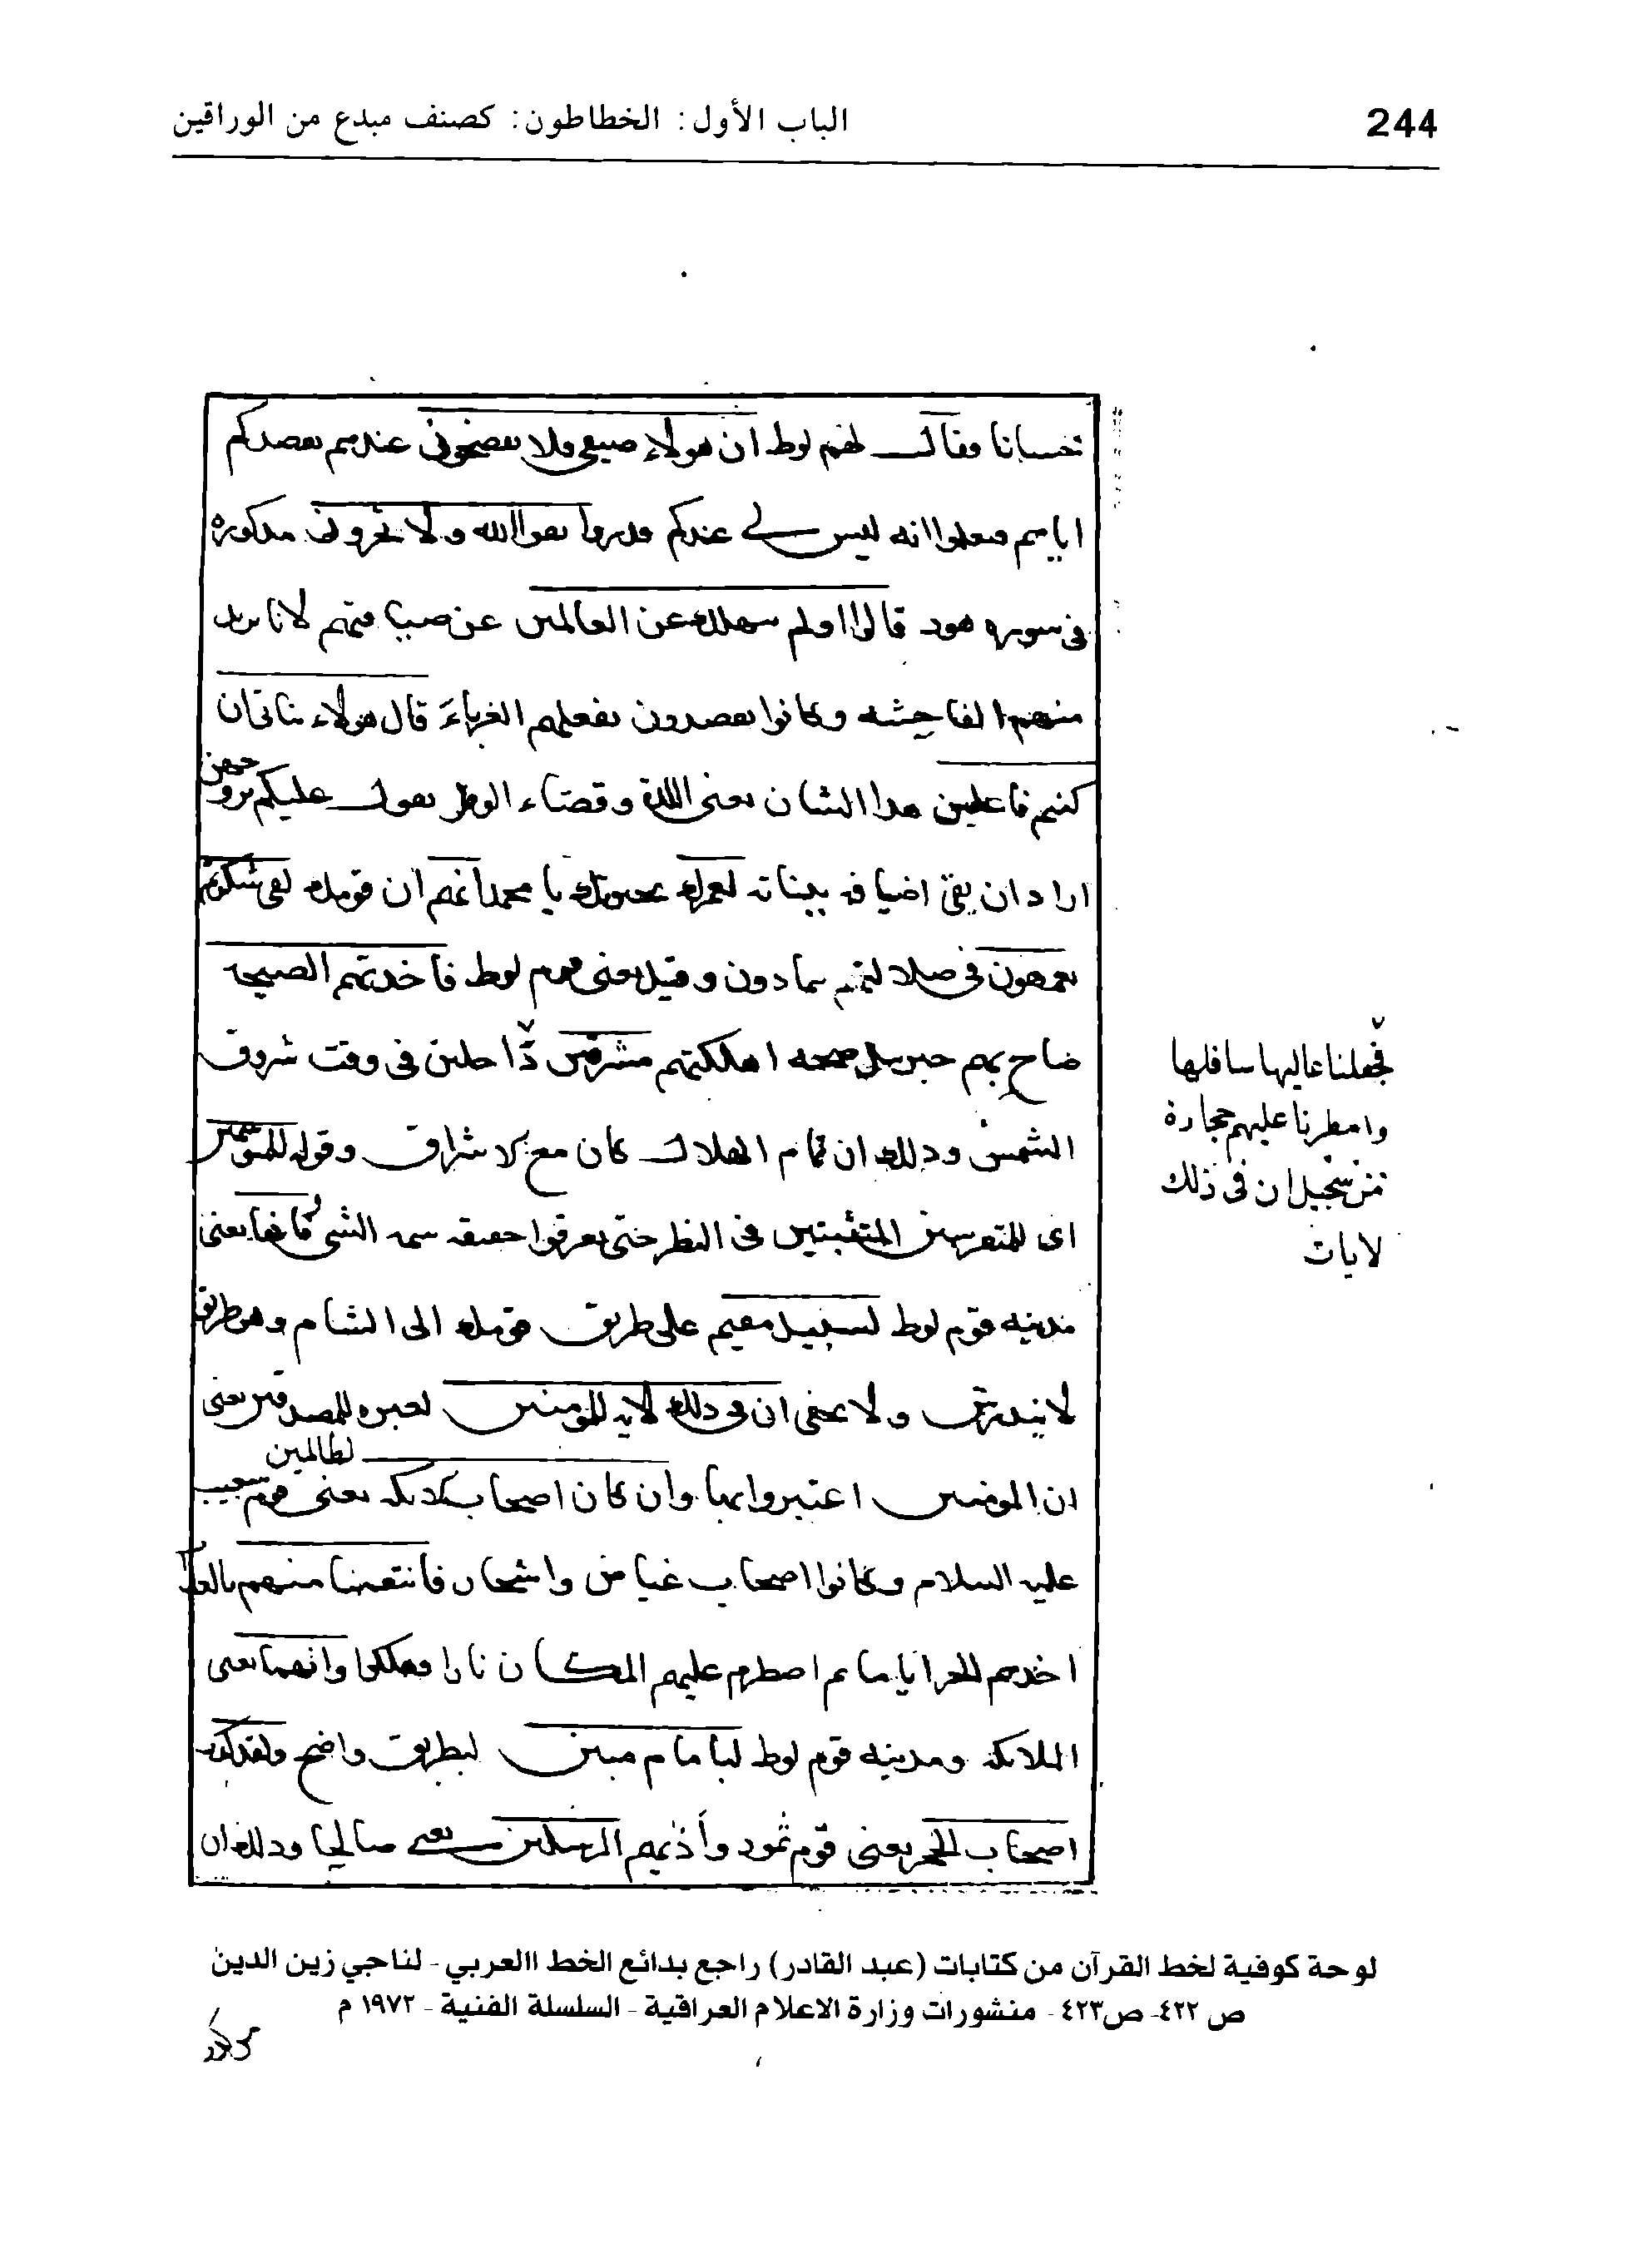 244
الباب الأول: الخطاطون: كصنف مبدع من الوراقين
وقال لهم لوط ان هولاء ضيفي فلا تفضحون عندهم بقصدكم
اياهم فيعلموا انه ليس لي عندكم قدر واتقوا الله ولا تخزون مذكوره
في سوره هود قالوا اولم ننهك عن العالمين عن ضيافتهم لانا نريد
منهم الفاحشه وكانوا يقصدون بفعلهم الغرباء قال هولاء بناتي ان
كنتم فاعلين هدا الشان يعني اللذة وقضاء الوطر يقول عليكم بتزويجهن
اراد ان يقي اضيافه ببناته لعمرك بحيوتك يا محمد انهم ان قومك لفي سكرتهم
يعمهون في ضلالتهم يتمادون وقيل يعني قوم لوط فاخذتهم الصيحه
صاح بهم جبريل صيحه اهلكتهم مشرقين داخلين في وقت شروق
الشمس ودلك ان تمام الهلاك كان مع الاشراق وقوله للمتوسمين
اي للمتفرسين المتثبتين في النظر حتى يعرفوا حقيقه سمه الشي وانها يعني
مدينه قوم لوط لبسبيل مقيم على طريق قومك الى الشام وهو طريق
لا يندرس ولا يخفى ان في دلك لايه للمومنين لعبره للمصدقين يعني
ان المومنين اعتبروا بها وان كان اصحاب الايكه لظالمين يعني قوم شعيب
عليه السلام وكانوا اصحاب غياض واشجار فانتقمنا منهم بالعذاب
اخدهم الحر اياما ثم اضطرم عليهم المكان نارا فهلكوا وانهما يعني
الايكه ومدينه قوم لوط لبامام مبين لبطريق واضح ولقد كذب
اصحاب الحجر يعني قوم ثمود المرسلين يعني صالحا ودلك ان
فجعلنا عاليها سافلها
وامطرنا عليهم حجارة
من سجيل ان في ذلك
لايات
لوحة كوفية لخط القرآن من كتابات (عبد القادر) راجع بدائع الخط االعربي - لناجي زين الدين
ص ٤٢٢- ص٤٢٣ - منشورات وزارة الاعلام العراقية - السلسلة الفنية - ١٩٧٢ م